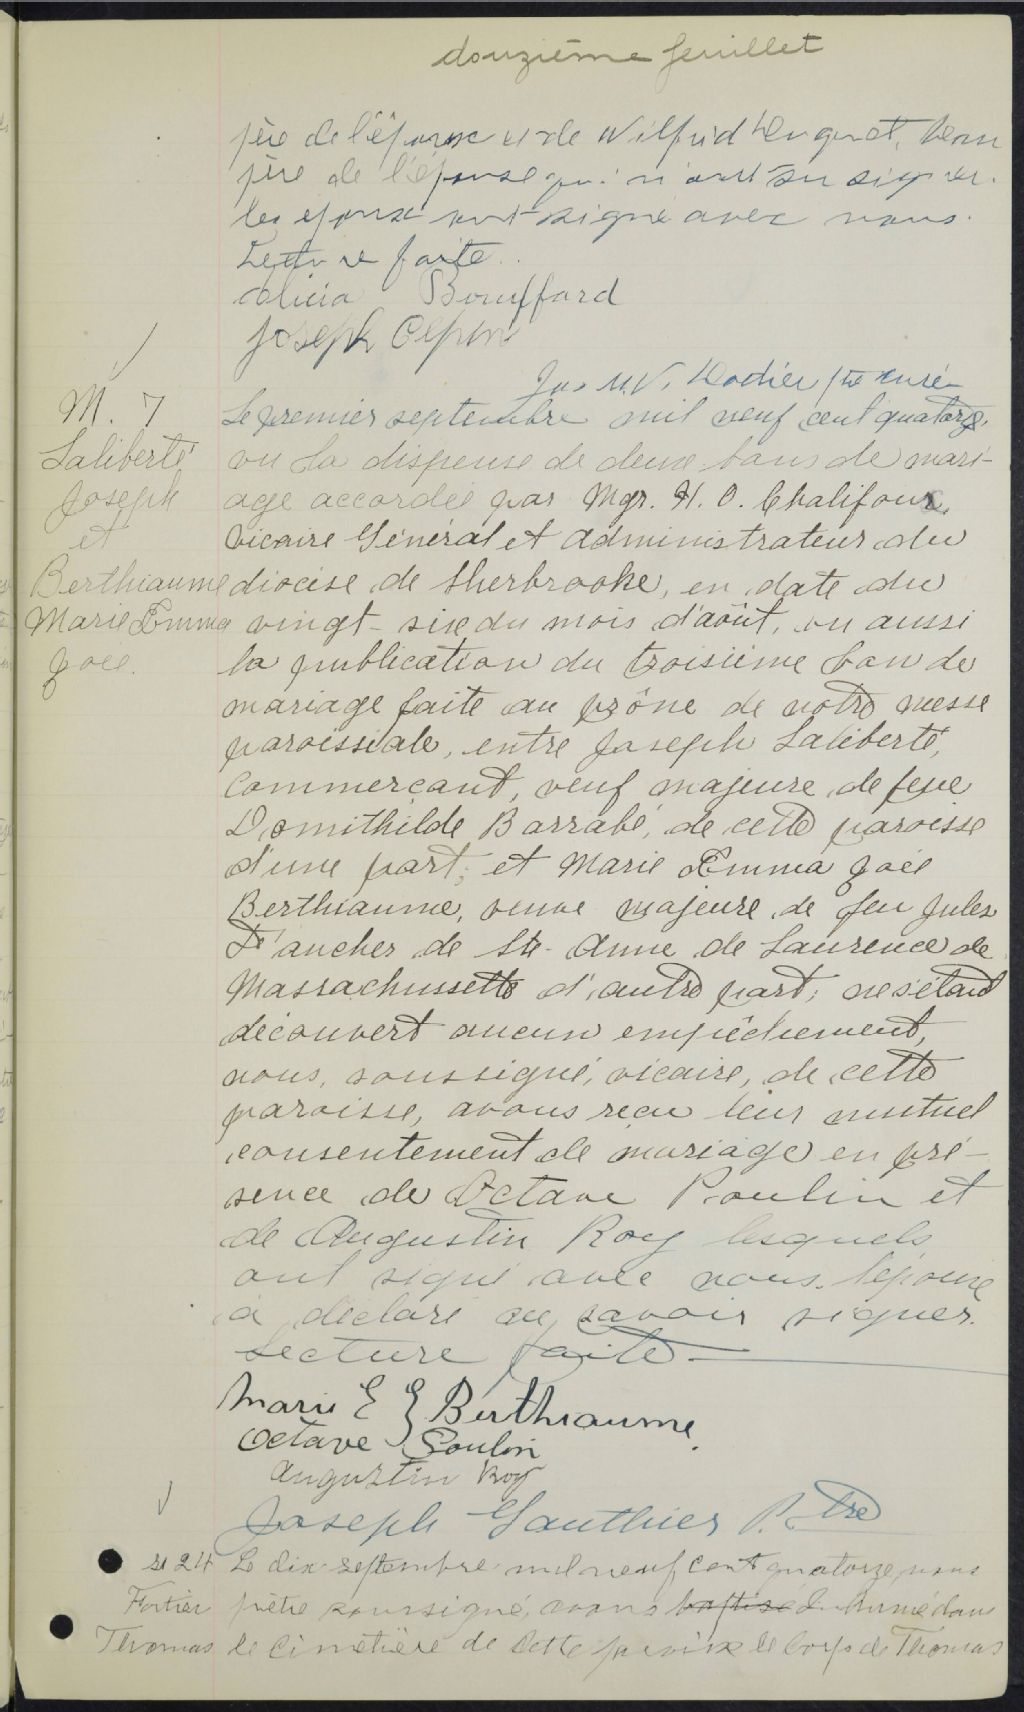 douzième feuillet
père de l'épouse et de Wilfrid Huquet, beau
père de l'épouse qui n'ont su signer.
les epoux ont signé avec nous.
Lecture faite.
Alicia Bouffard
Joseph Pepin
Jos M.V. Hodier ptre curé
M. 7
Laliberté
Joseph
et
Berthiaume
Marie Emma
Zoée.
Le premier septembre mil neuf cent quatorze,
vu la dispense de deux bans de mari-
age accordée par Mgr. H. O. Chalifoux,
Vicaire Général et Administrateur du
diocèse de Sherbrooke, en date du
vingt-six du mois d'août, vu aussi
la publication du troisième ban de
mariage faite au prône de notre messe
paroissiale, entre Joseph Laliberté,
Commerçant, veuf majeure de feue
Domithilde Barrabé, de cette paroisse
d'une part; et Marie Emma Zoée
Berthiaume, veuve majeure de feu Jules
F'ancher de Ste-Anne de Laurence de
Massachussetts d'autre part; ne s'étant
découvert aucun empêchement,
nous, soussigné, vicaire, de cette
paroisse, avons reçu leur mutuel
consentement de mariage en pré-
sence de Octave Poulin et
de Augustin Roy lesquels
ont signé avec nous. l'épouse
a déclaré ne savoir signer.
Lecture faite
Marie E Z Berthiaume
Octave Poulin
Augustin Roy
Joseph Gauthier Ptre
S 24
Fortier
Thomas
Le dix septembre mil neuf cent quatorze, nous
prêtre soussigné, avons baptisé inhumé dans
le cimetière de cette paroisse le corps de Thomas